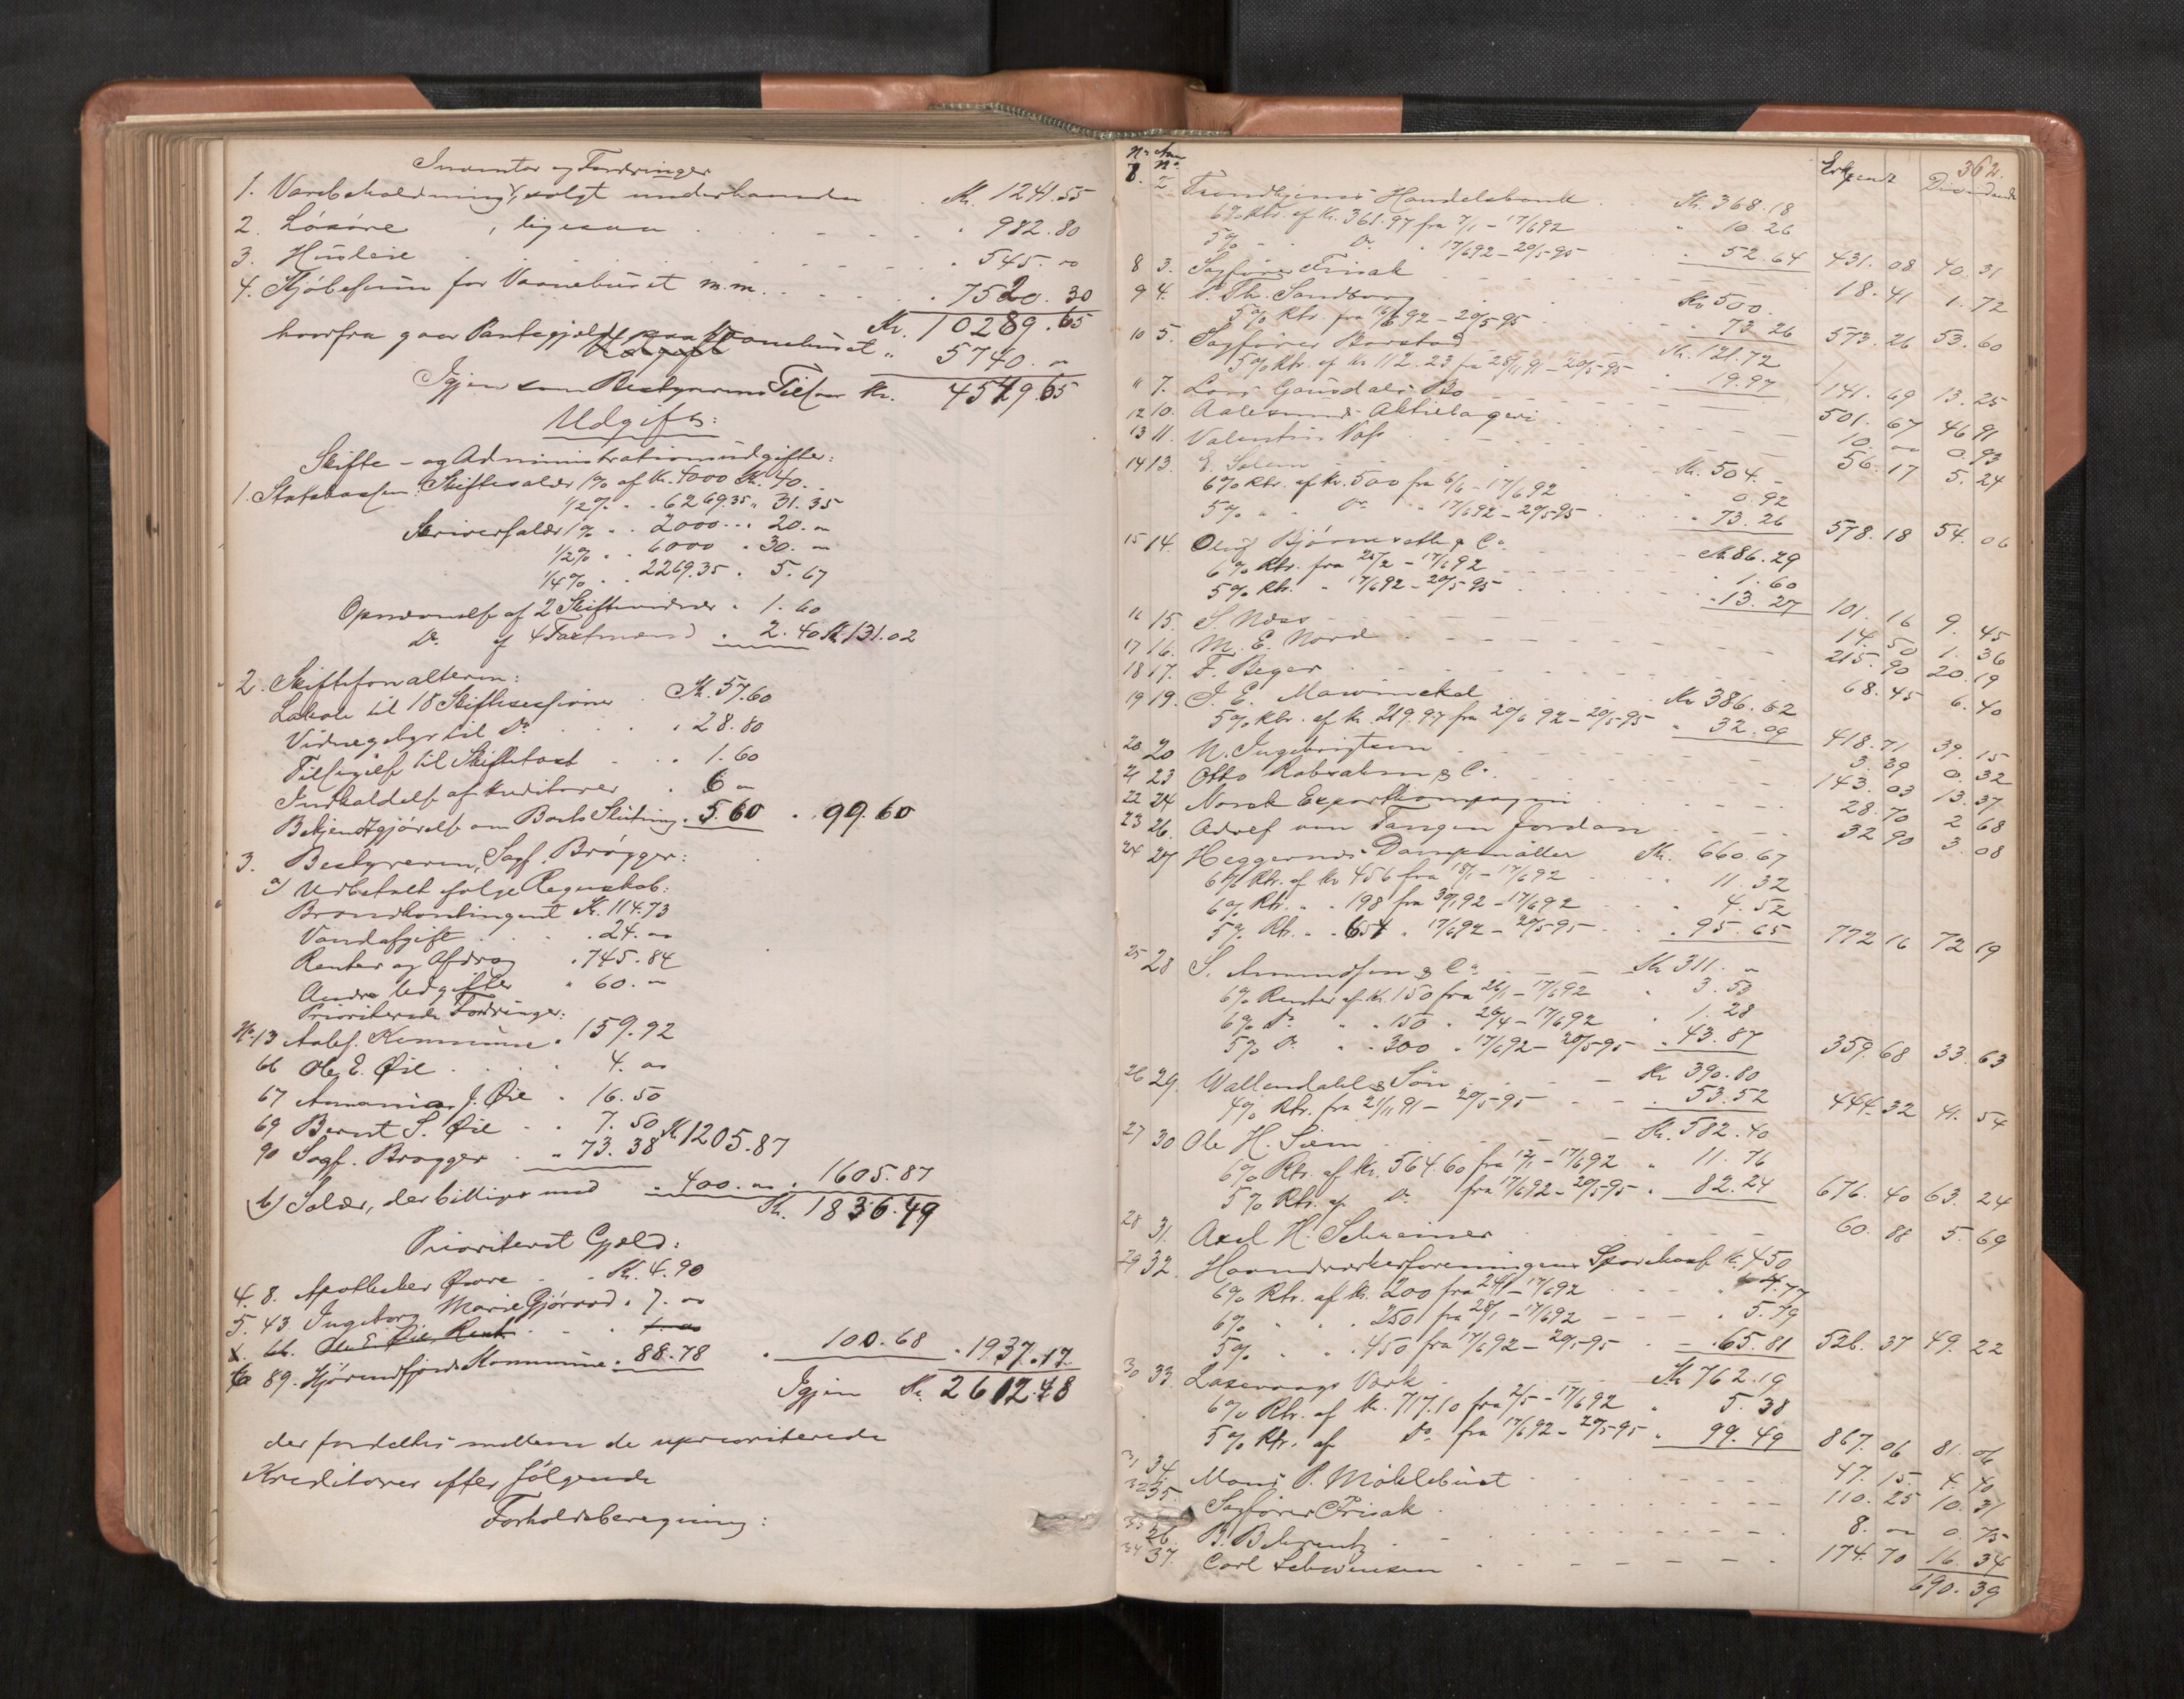 Inventar og Fordringer
1. Varebeholdning, solgt underhaanden . . Kr. 1241.55
2. Løsøre , ligesaa . . . . . . " 982.80
3. Husleie . . . . . . . . " 545. "
4. Kjøbesum for Vaanehuset m.m. . . . . " 7520.30
Kr. 10289.65
hvorfra gaar Pantegjæld paa Vaanehuset " 5740. "
Igjen som Bestyreren Tilsvar Kr. 4549.65
Udgift:
Skifte- og Administrationsudgifter:
1. Statskassen: Skiftesalær 1% af Kr. 4000 Kr. 40. "
1/2% " " 6269.35 " 31.35
Skriversalær 1% " " 2000 " " 20. "
1/2% " " 6000 " 30. "
1/4% " " 2269.35 " 5.67
Opnævnelse af 2 Skiftevidner " 1.60
Do. af 4 Taxtmænd " 2.40 Kr. 131.02
2. Skifteforvalteren:
Lokale til 18 Skiftesessioner . Kr. 57.60
Vidnegebyr til Do . . . " 28.80
Tilsigelse til Skiftetaxt . . " 1.60
Indkaldelse af Kreditorer . " 6 "
Bekjendtgjørelse om Boets Slutning " 5.60 " 99.60
3. Bestyreren, Sagf. Brøgger:
a) Udbetalt ifølge Regnskab:
Brandkontingent Kr. 114.73
Vandafgift . . . " 24. "
Renter og Afdrag " 745.84
Andre Udgifter " 60. "
Prioriterede Fordringer:
No. 13 Aales. Kommune " 159.92
66 Ole E. Øie . . . . 4. "
67 Ammania J. Øie " 16.50
69 Bernt S. Øie . . 7.50
90 Sagf. Brøgger . " 73.38 Kr. 1205.87
b) Salær, der billiges med " 400. " " 1605.87
Kr. 1836.49
Prioriteret Gjæld:
4. 8. Apotheker Øwre . . Kr. 4.90
5. 43. Ingeborg Marie Gjørvad . 7. "
66. Ole E. Øie, Rest . . .
6 89. Hjørundfjords Kommune " 88.78 " 100.68 " 1937.17
Igjen Kr. 2612.48
der fordeltes mellem de uprioriterede
Kreditorer efter følgende
Forholdsberegning:
362.
Dividende
7. 2 Trondhjems Handelsbank . . Kr. 368.18
6% Rtr. af Kr. 361.97 fra 7/1 - 17/6 92 " 10.26
5% " " Do. " 17/6 92 - 20/5-95 . . 52.64 431.08 40.31
8 3. Sagfører Frisak 18.41 1.72
9 4. P. Th. Sandborg . . Kr. 500.
5% Rtr. fra 17/6 92 - 20/5-95 . . 73.26 573.26 53.60
10 5. Sagfører Barstad . . Kr. 121.72
5% Rtr. af Kr. 112.23 fra 25/11 91 - 20/5-95 " 19.97 141.69 13.25
11 7. Lars Gausdals Bo . . . 501.67 46.91
12 10. Aalesunds Aktiebageri . . 10. " 0.93
13 11. Valentin Voss . . . 56.17 5.24
14 13. E. Solem . . . Kr. 504. "
6% Rtr. af Kr. 500 fra 6/6 - 17/6 92 " 0.92
5% " " Do. " 17/6 92 - 20/5-95 . " 73.26 578.18 54.06
15 14. Oluf Bjørnseth & Co. . . Kr. 86.29
6% Rtr. fra 25/2 - 17/6 92 " 1.60
5% Rtr. " 17/6 92 - 20/5-95 . . " 13.27 101.16 9.45
16 15. S. Næss . . . 14.50 1.36
17 16. M. E. Nord . . . 215.90 20.19
18 17. F. Beyer . . . 68.45 6.40
19 19. J. E. Mowinckel . . Kr. 386.62
5% Rtr. af Kr. 219.97 fra 20/6 92 - 20/5-95 " 32.09 418.71 39.15
20 20 N. Ingebrigtsen . . . 3.39 0.32
21 23 Otto Robsahm & Co. . . 143.03 13.37
22 24 Norsk Exportkompagni . . 28.70 2.68
23 26. Adolf von Tangen Jordan . . 32.90 3.08
24 27 Heggernes Dampmøller Kr. 660.67
6% Rtr. af Kr. 456 fra 18/1 - 17/6 92 . . 11.32
6% Rtr. " " 198 fra 30/1 92 - 17/6 92 . " 4.52
5% Rtr. " " 654 " 17/6 92 - 20/5-95 . . " 95.65 772.16 72.19
25 28 S. Amundsen & Co. . . Kr. 311. "
6% Renter af Kr. 150 fra 26/1 - 17/6 92 " 3.53
6% Do. " " 150 " 26/4 - 17/6 92 " 1.28
5% Do. " " 300 " 17/6 92 - 20/5-95 " 43.87 359.68 33.63
26 29. Wallendahl & Søn . . Kr. 390.80
4% Rtr. fra 21/11 91 - 20/5-95 . . . 53.52 444.32 41.54
27 30 Ole H. Siem . . Kr. 582.40
6% Rtr. af Kr. 564.60 fra 12/1 - 17/6 92 " 11.76
5% Rtr. af Do. fra 17/6 92 - 20/5-95 " 82.24 676.40 63.24
28 31. Axel H. Schreiner . . . 60.88 5.69
29 32. Haandværkerforeningens Sparekasse Kr. 450
6% Rtr. af Kr. 200 fra 24/1 - 17/6 92 . . 4.77
6% " " " 250 fra 28/1 - 17/6 92 . . " 5.79
5% " " " 450 fra 17/6 92 - 20/5-95 . . 65.81 526.37 49.22
30 33. Laxevaags Værk . . Kr. 762.19
6% Rtr. af Kr. 717.10 fra 2/5 - 17/6 92 " 5.38
5% Rtr. af Do. fra 17/6 92 - 20/5-95 " 99.49 867.06 81.06
31 34. Mons P. Møklebust . . . 47.15 4.40
32 35. Sagfører Frisak . . . 110.25 10.31
33 36. B. Behrentz . . . 8. " 0.75
34 37. Carl Schwensen . . . 174.70 16.34
690.39